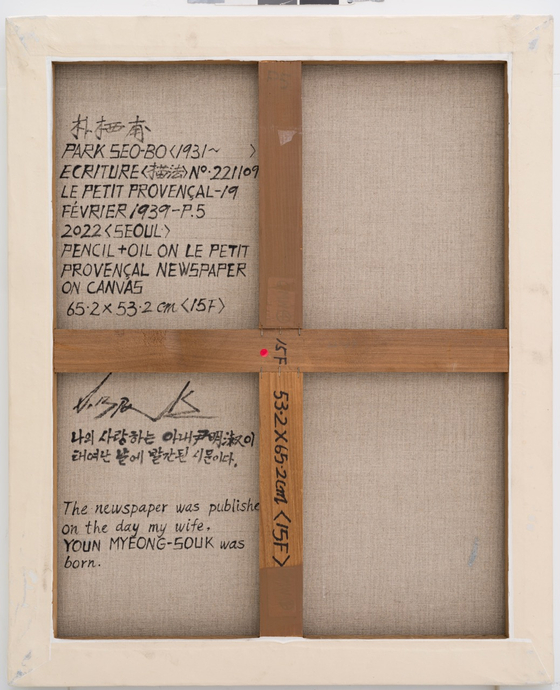 朴栖甫
PARK SEO-BO<1931~ >
ECRITURE<描法>Nº·221109
LE PETIT PROVENÇAL-19
FÉVRIER 1939-P.5
2022<SEOUL>
PENCIL+OIL ON LE PETIT
PROVENÇAL NEWSPAPER
ON CANVAS
65·2×53·2 cm<15F>
15F
53·2×65·2cm<15F>
나의 사랑하는 아내尹明淑이
태여난 날에 발간된 신문이다.
The newspaper was publishe
on the day my wife.
YOUN MYEONG-SOUK was
born.